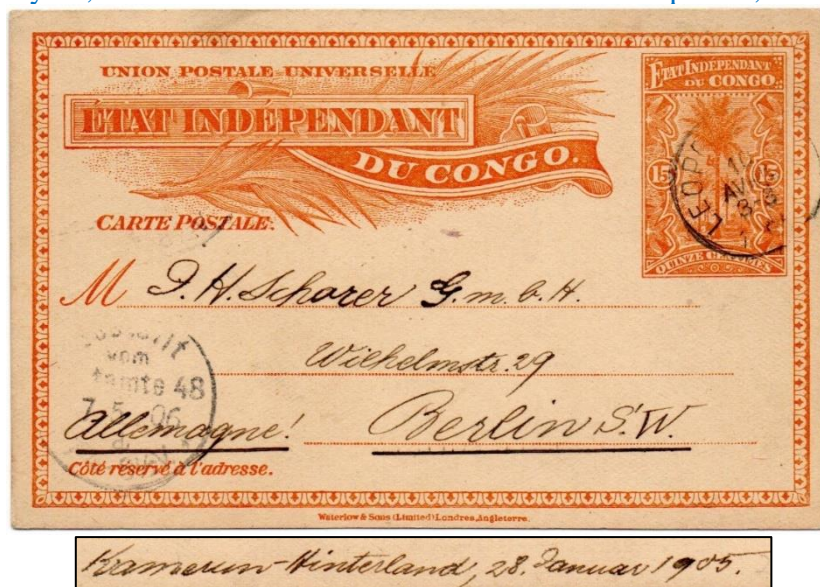 UNION POSTALE UNIVERSELLE
ÉTAT INDÉPENDANT
DU CONGO.
CARTE POSTALE.
ÉTAT INDÉPENDANT
DU CONGO.
15 15
QUINZE CENTIMES
LEOP
M J. H. Schorer G. m. b. H.
Wilhelmstr. 29
vom
48
7.5.06
Allemagne! Berlin S.W.
Côté réservé à l'adresse.
Waterlow & Sons (Limited) Londres, Angleterre.
Kamerun-Hinterland, 28. Januar 1905.